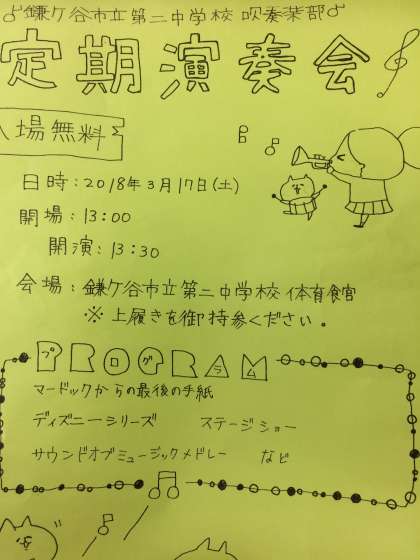 鎌ケ谷市立第二中学校 吹奏楽部
定期演奏会
入場無料
日時:2018年3月17日(土)
開場:13:00
開演:13:30
会場:鎌ケ谷市立第二中学校 体育館
※上履きを御持参ください。
PROGRAM
プログラム
マードックからの最後の手紙
ディズニーシリーズ ステージショー
サウンドオブミュージックメドレー など